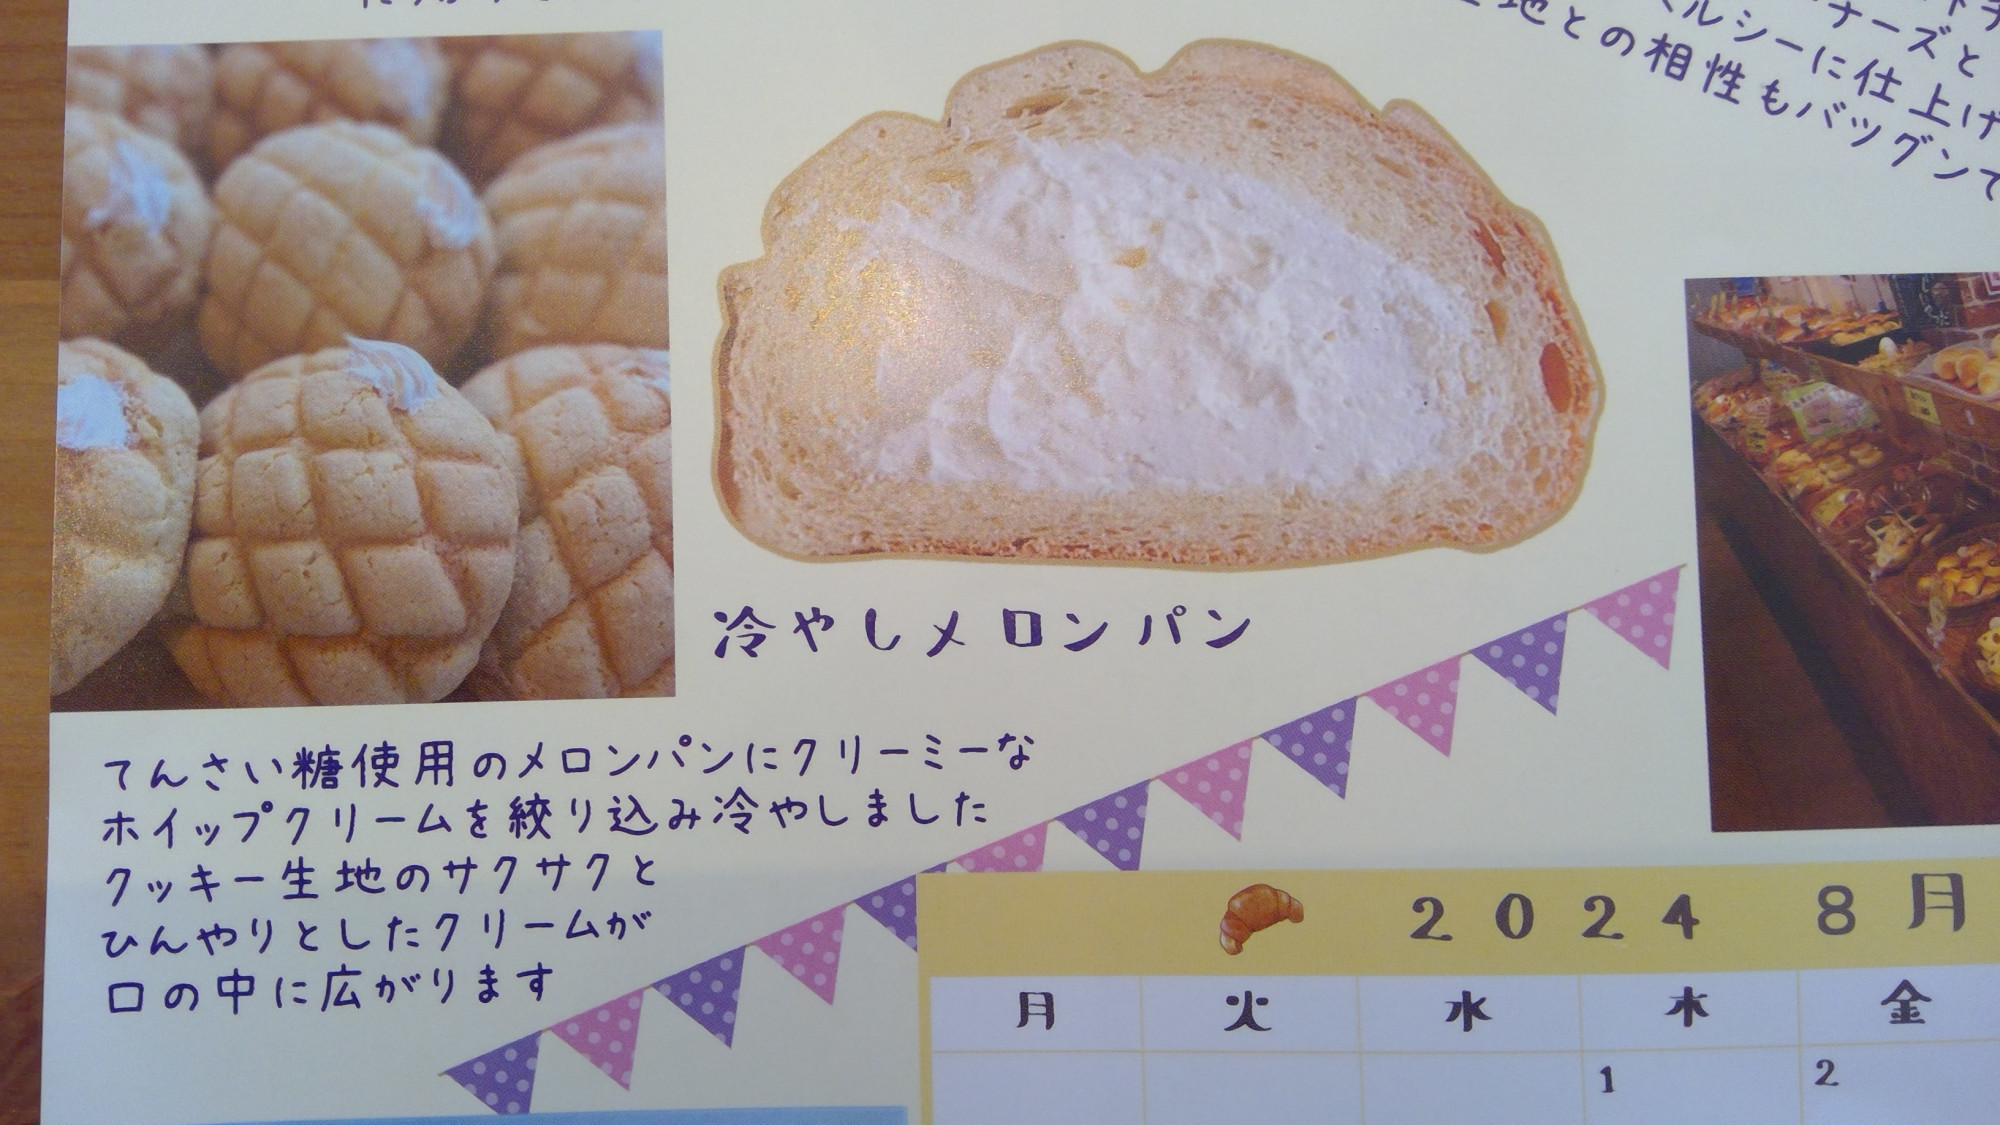 ヘルシーに仕上げ
地との相性もバツグンで
冷やしメロンパン
てんさい糖使用のメロンパンにクリーミーな
ホイップクリームを絞り込み冷やしました
クッキー生地のサクサクと
ひんやりとしたクリームが
口の中に広がります
2024 8月
月 火 水 木 金
1 2